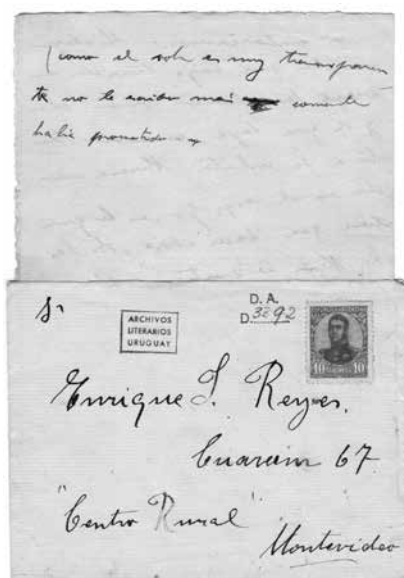 (como el sobre es muy transparen
te no le escribo más como le
había prometido
Sr
ARCHIVOS
LITERARIOS
URUGUAY
D. A.
D. 3292
10 10
Enrique J. Reyes.
Cuareim 67.
"Centro Rural"
Montevideo